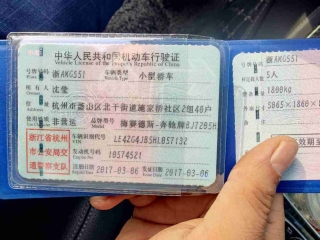 中华人民共和国机动车行驶证
Vehicle License of the People's Republic of China
号牌号码 浙AKG551 车辆类型 小型轿车
Plate No. Vehicle Type
所有人 沈莹
Owner
住址 杭州市萧山区北干街道施家桥社区2组40户
Address
使用性质 非营运 品牌型号 梅赛德斯-奔驰牌
Model
浙江省杭州
市公安局交
通警察支队
车辆识别代号
VIN
发动机号码 18574521
Engine No.
注册日期 2017-03-06 发证日期 2017-03-06
Register Date Issue Date
浙AKG551
5人
1880kg